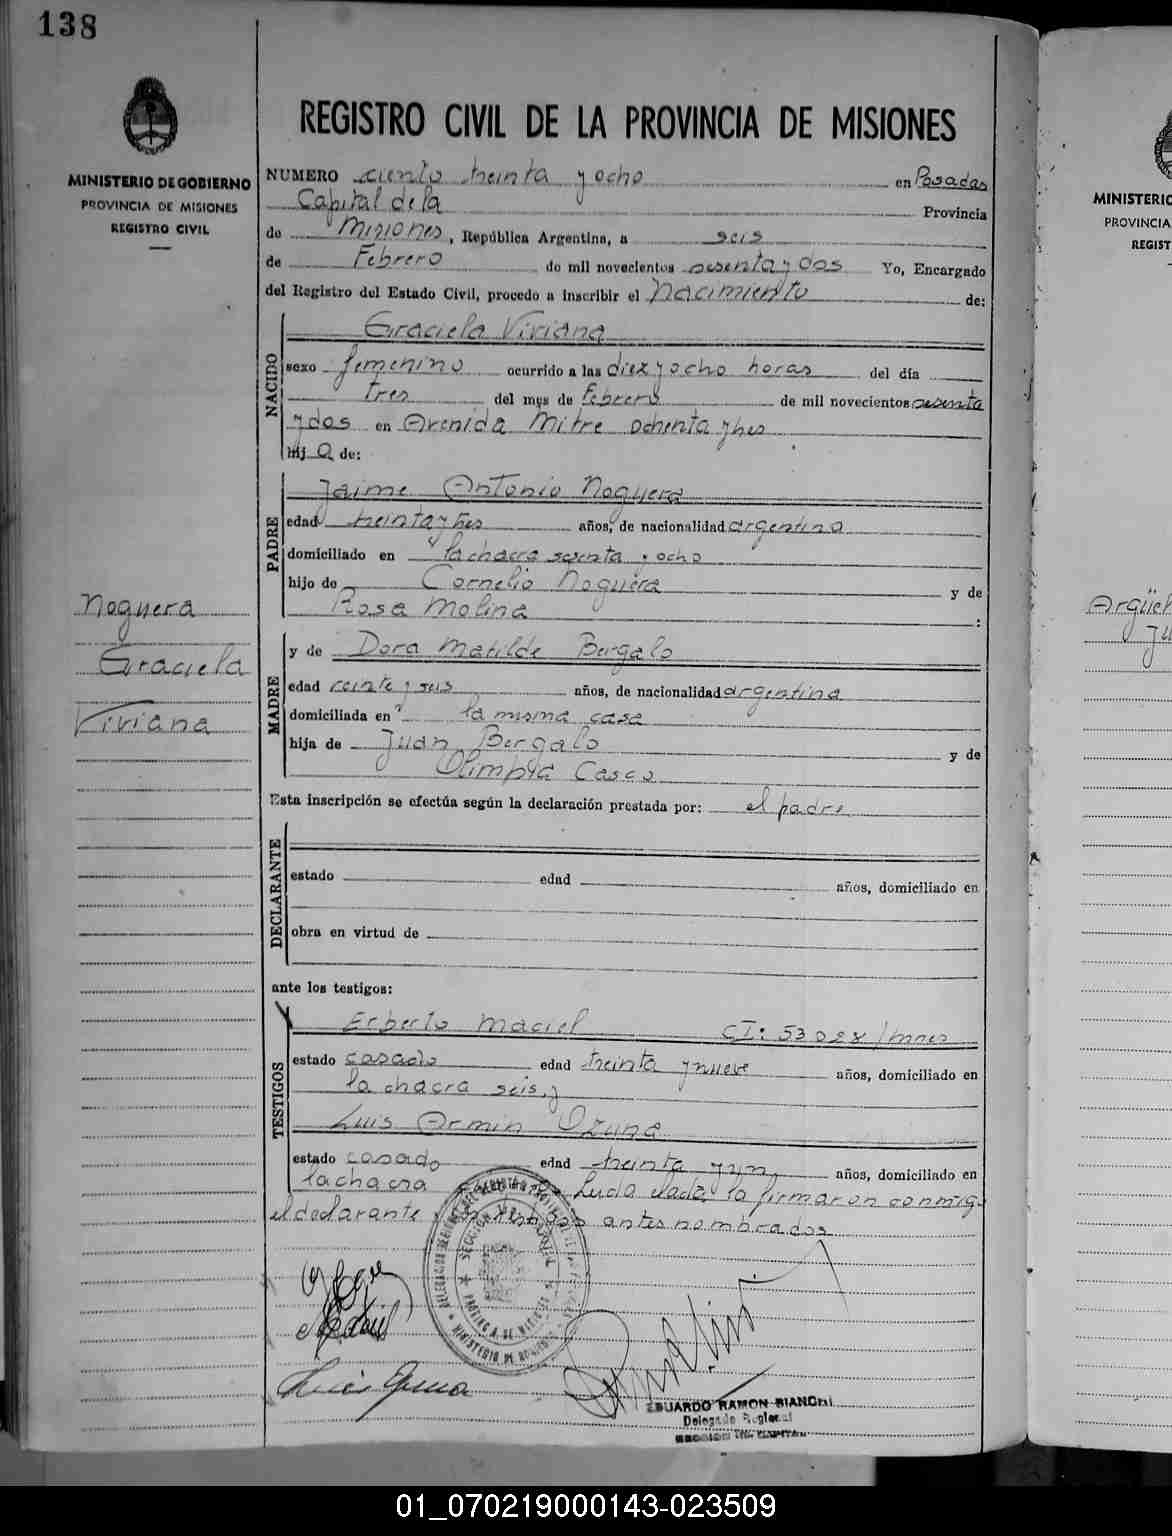 138
MINISTERIO DE GOBIERNO
PROVINCIA DE MISIONES
REGISTRO CIVIL
REGISTRO CIVIL DE LA PROVINCIA DE MISIONES
NUMERO ciento treinta y ocho en Posadas
Capital de la Provincia
de Misiones, República Argentina, a seis
de Febrero de mil novecientos sesenta y dos Yo, Encargado
del Registro del Estado Civil, procedo a inscribir el Nacimiento de:
NACIDO
Graciela Viviana
sexo femenino ocurrido a las diez y ocho horas del día
tres del mes de Febrero de mil novecientos sesenta
y dos en Avenida Mitre ochenta y tres
hij a de:
PADRE
Jaime Antonio Noguera
edad treinta y tres años, de nacionalidad argentina
domiciliado en la chacra sesenta y ocho
hijo de Cornelio Noguera y de
Rosa Molina :
MADRE
y de Dora Matilde Bergalo
edad veinte y seis años, de nacionalidad argentina
domiciliada en la misma casa
hija de Juan Bergalo y de
Olimpia Casco
Noguera
Graciela
Viviana
Esta inscripción se efectúa según la declaración prestada por: el padre
DECLARANTE
estado edad años, domiciliado en
obra en virtud de
ante los testigos:
TESTIGOS
Erberto Maciel CI: 53028/Mnes
estado casado edad treinta y nueve años, domiciliado en
la chacra seis, y
Luis Armin Ozuna
estado casado edad treinta y un años, domiciliado en
la chacra Leida el acta, la firmaron conmigo
el declarante y testigos antes nombrados
Luis Ozuna
EDUARDO RAMON BIANCHI
Delegado Reglonal
SECCION CAPITAL
MINISTERIO
PROVINCIA
REGIST
Argüel
Ju
01_070219000143-023509